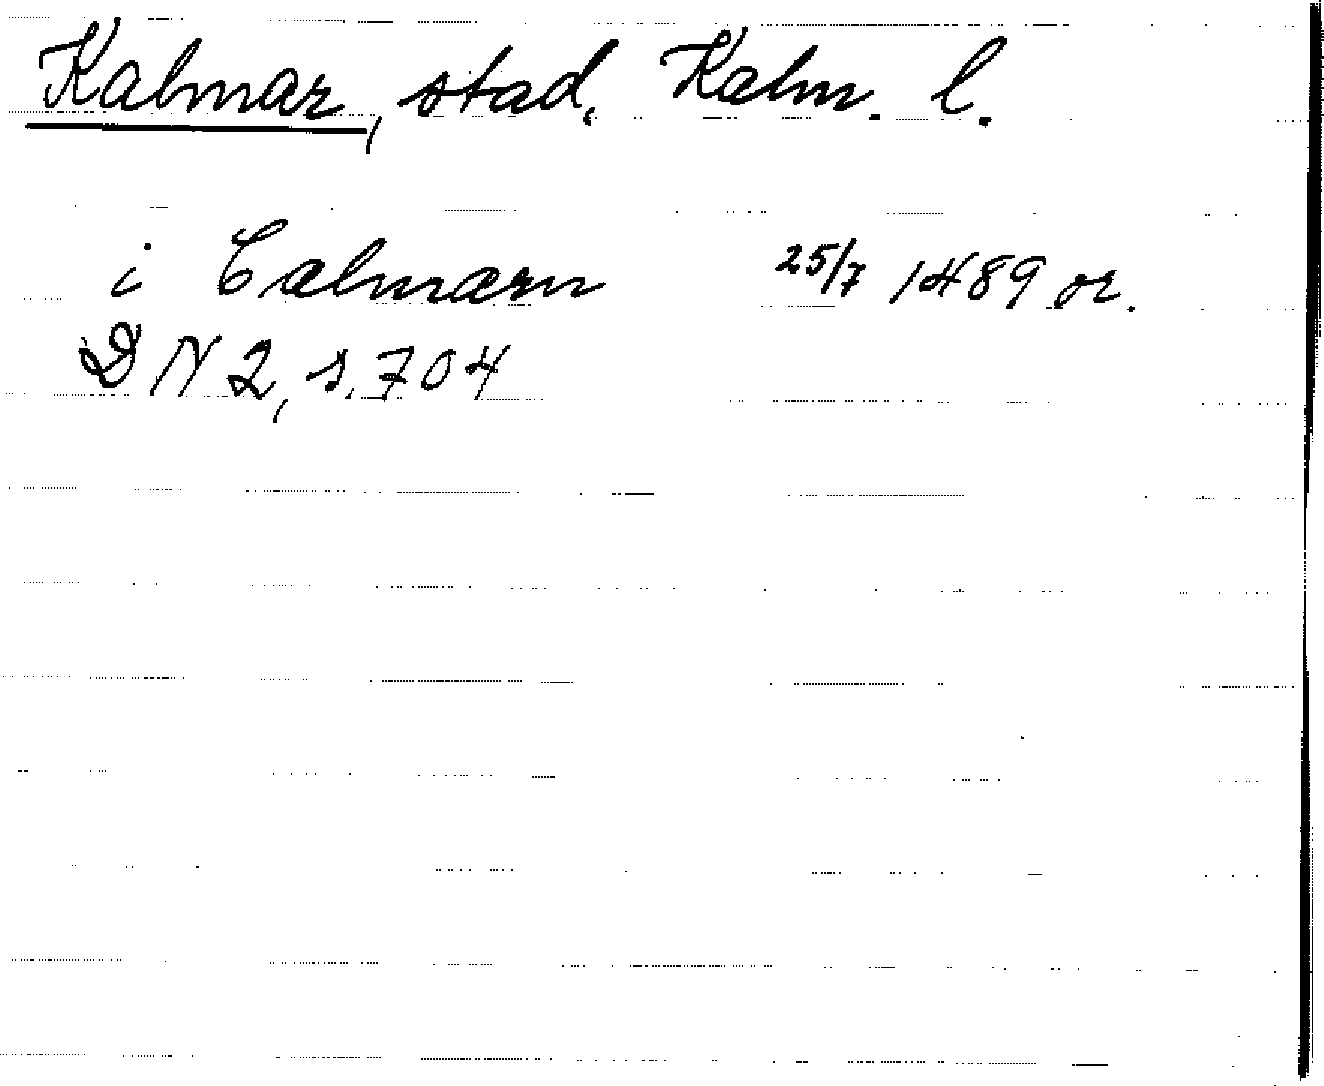 Kalmar, stad, Kalm. l.
i Calmarn 25/7 1489 or.
DN 2, s. 704